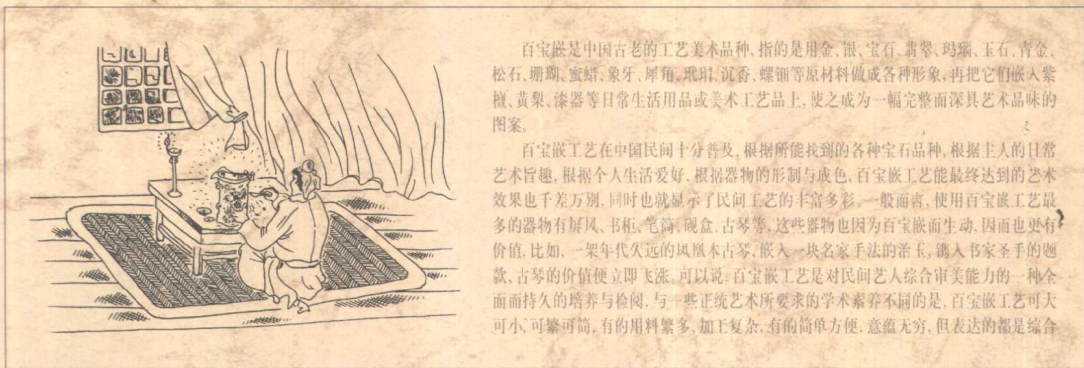 百宝嵌是中国古老的工艺美术品种,指的是用金、银、宝石、翡翠、玛瑙、玉石、青金、
松石、珊瑚、蜜蜡、象牙、犀角、玳瑁、沉香、螺钿等原材料做成各种形象,再把它们嵌入紫
檀、黄梨、漆器等日常生活用品或美术工艺品上,使之成为一幅完整而深具艺术品味的
图案。
百宝嵌工艺在中国民间十分普及,根据所能找到的各种宝石品种,根据主人的日常
艺术旨趣,根据个人生活爱好,根据器物的形制与成色,百宝嵌工艺能最终达到的艺术
效果也千差万别,同时也就显示了民间工艺的丰富多彩。一般而言,使用百宝嵌工艺最
多的器物有屏风、书柜、笔筒、砚盒、古琴等,这些器物也因为百宝嵌而生动,因而也更有
价值,比如,一架年代久远的凤凰木古琴,嵌入一块名家手法的治玉,镌入书家圣手的题
款,古琴的价值便立即飞涨,可以说,百宝嵌工艺是对民间艺人综合审美能力的一种全
面而持久的培养与检阅,与一些正统艺术所要求的学术素养不同的是,百宝嵌工艺可大
可小,可繁可简,有的用料繁多,加工复杂,有的简单方便,意蕴无穷,但表达的都是综合